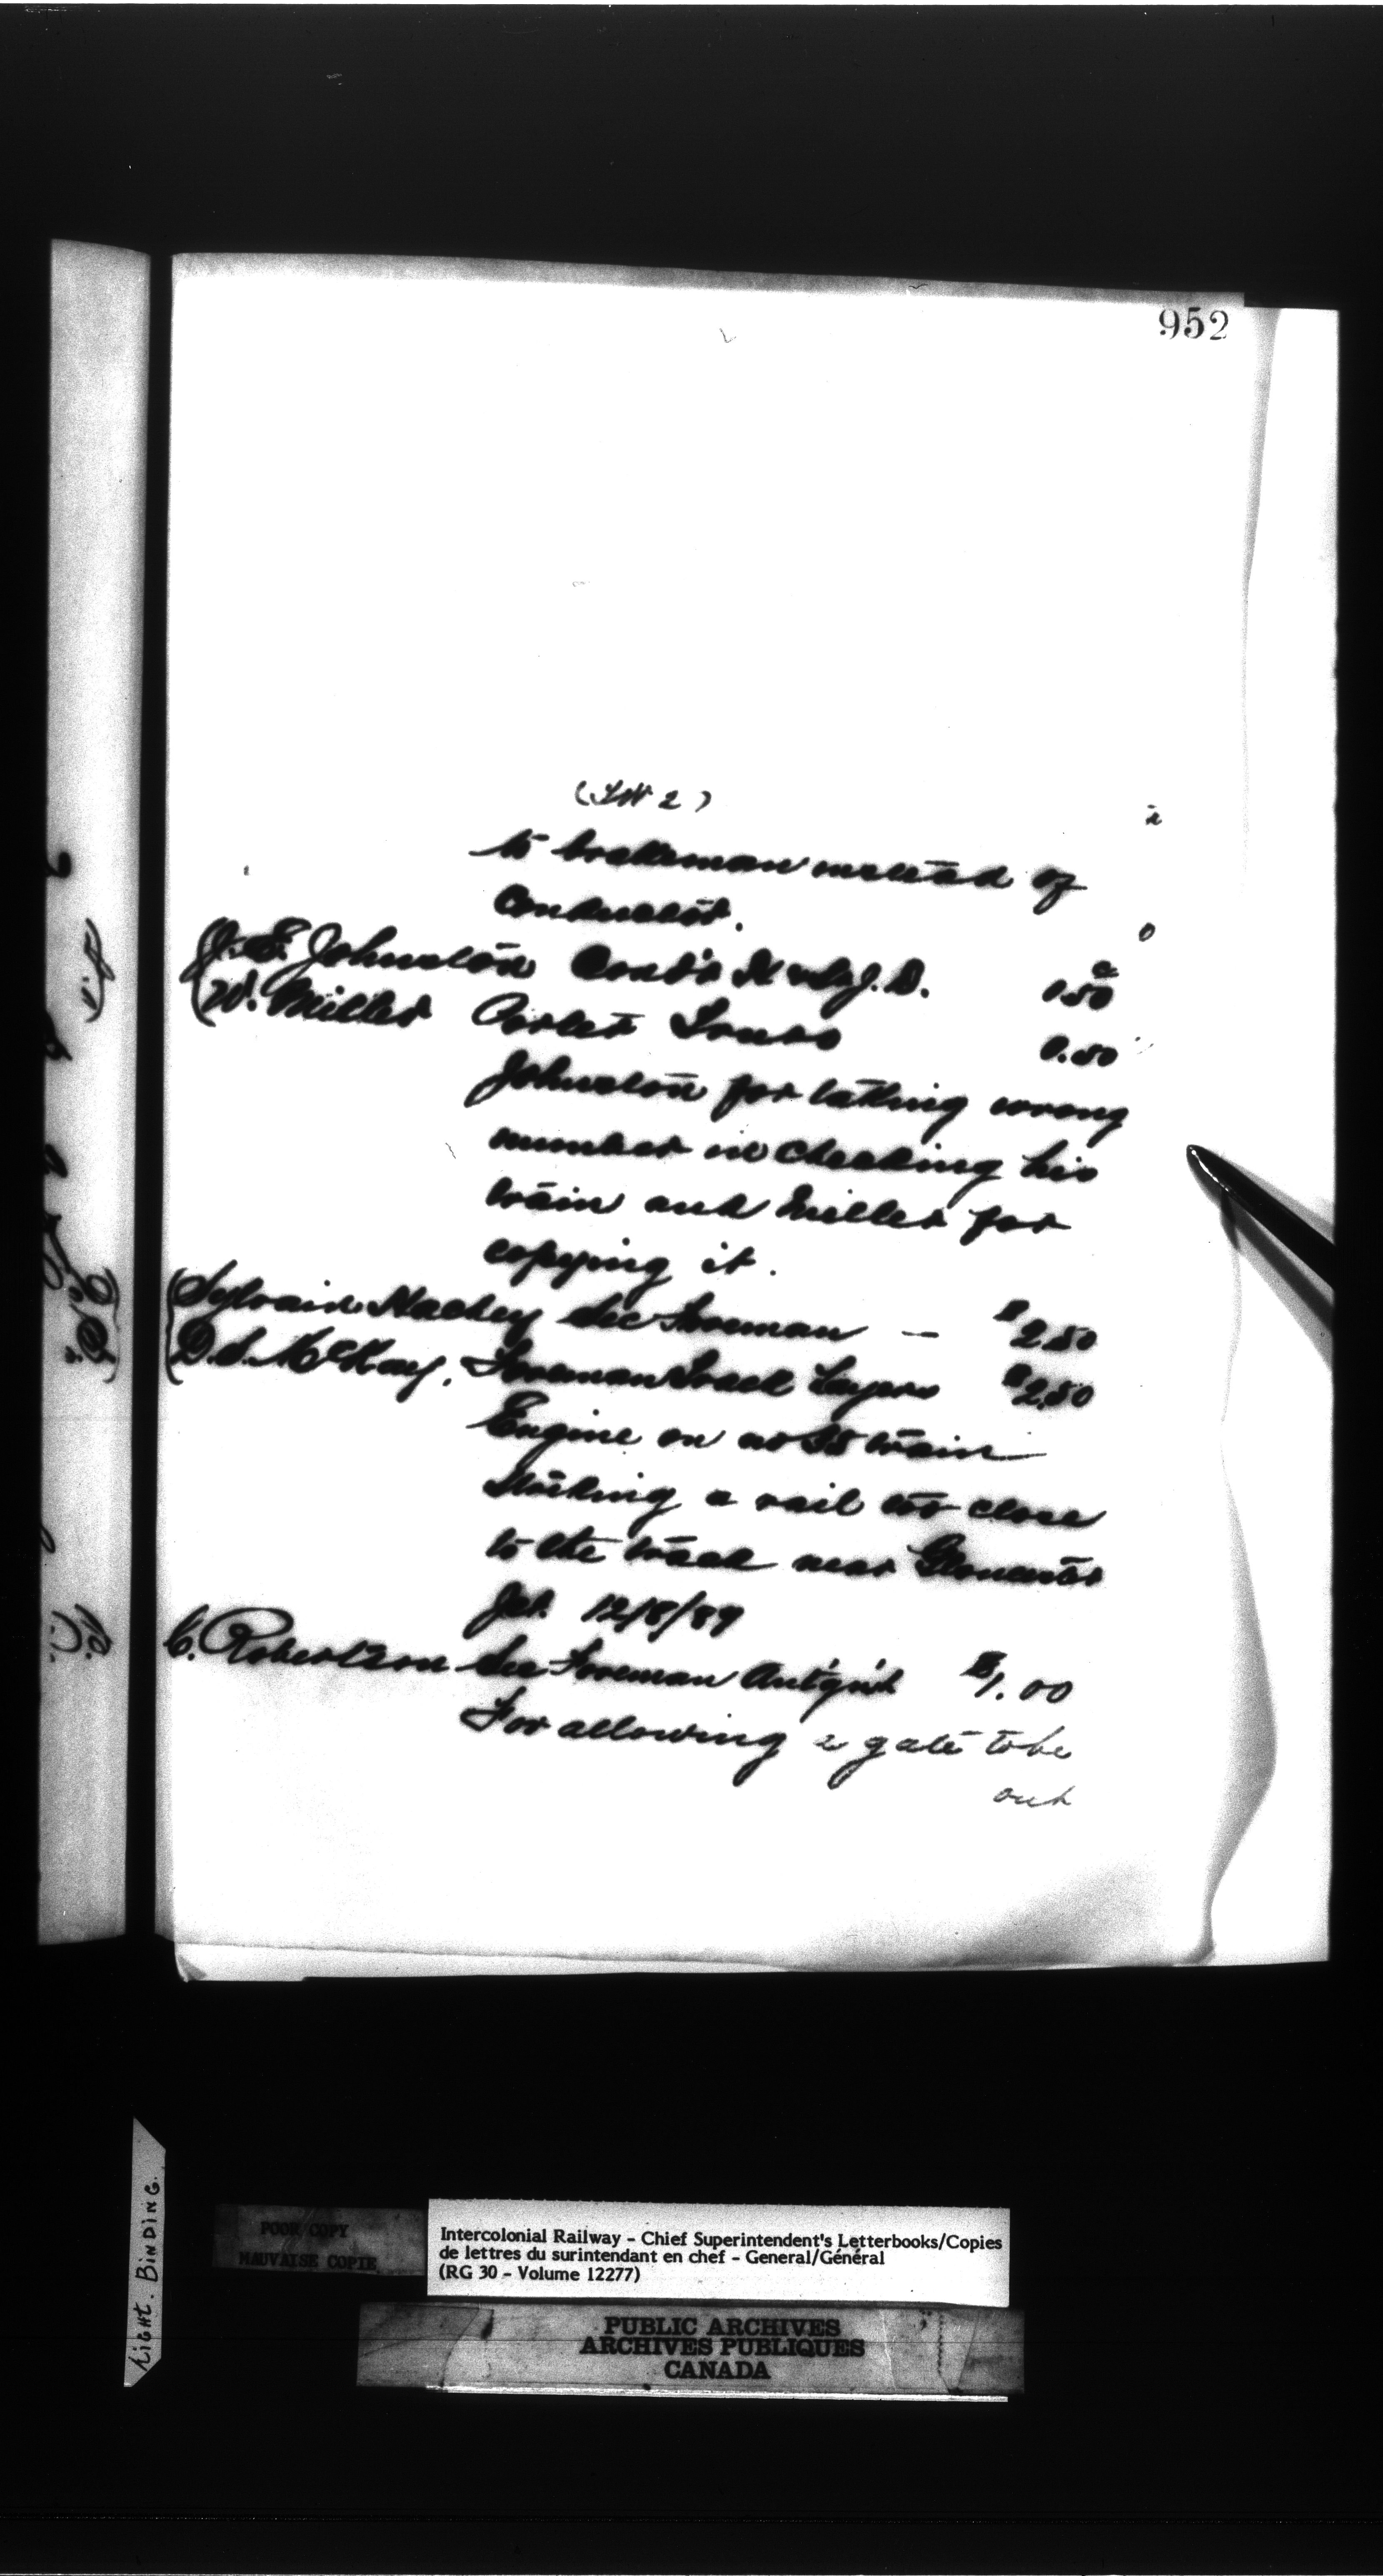 952
to brakeman instead of
Conductor.
J. E. Johnston Cond'r 0.50
W. Miller Porter Truro 0.50
Johnston for taking wrong
number in checking his
train and Miller for
copying it.
Sylvain Hachey Sec Foreman — $2.50
D. S. McKay, Foreman Track Layers $2.50
Engine on no 35 train
Striking a rail too close
to the track near Gloucester
Jct. 12/8/89
C. Robertson Sec Foreman Ant'gish $1.00
For allowing a gate to be
out
RIGHT. BINDING.
POOR COPY
MAUVAISE COPIE
Intercolonial Railway - Chief Superintendent's Letterbooks/Copies
de lettres du surintendant en chef - General/Général
(RG 30 - Volume 12277)
PUBLIC ARCHIVES
ARCHIVES PUBLIQUES
CANADA